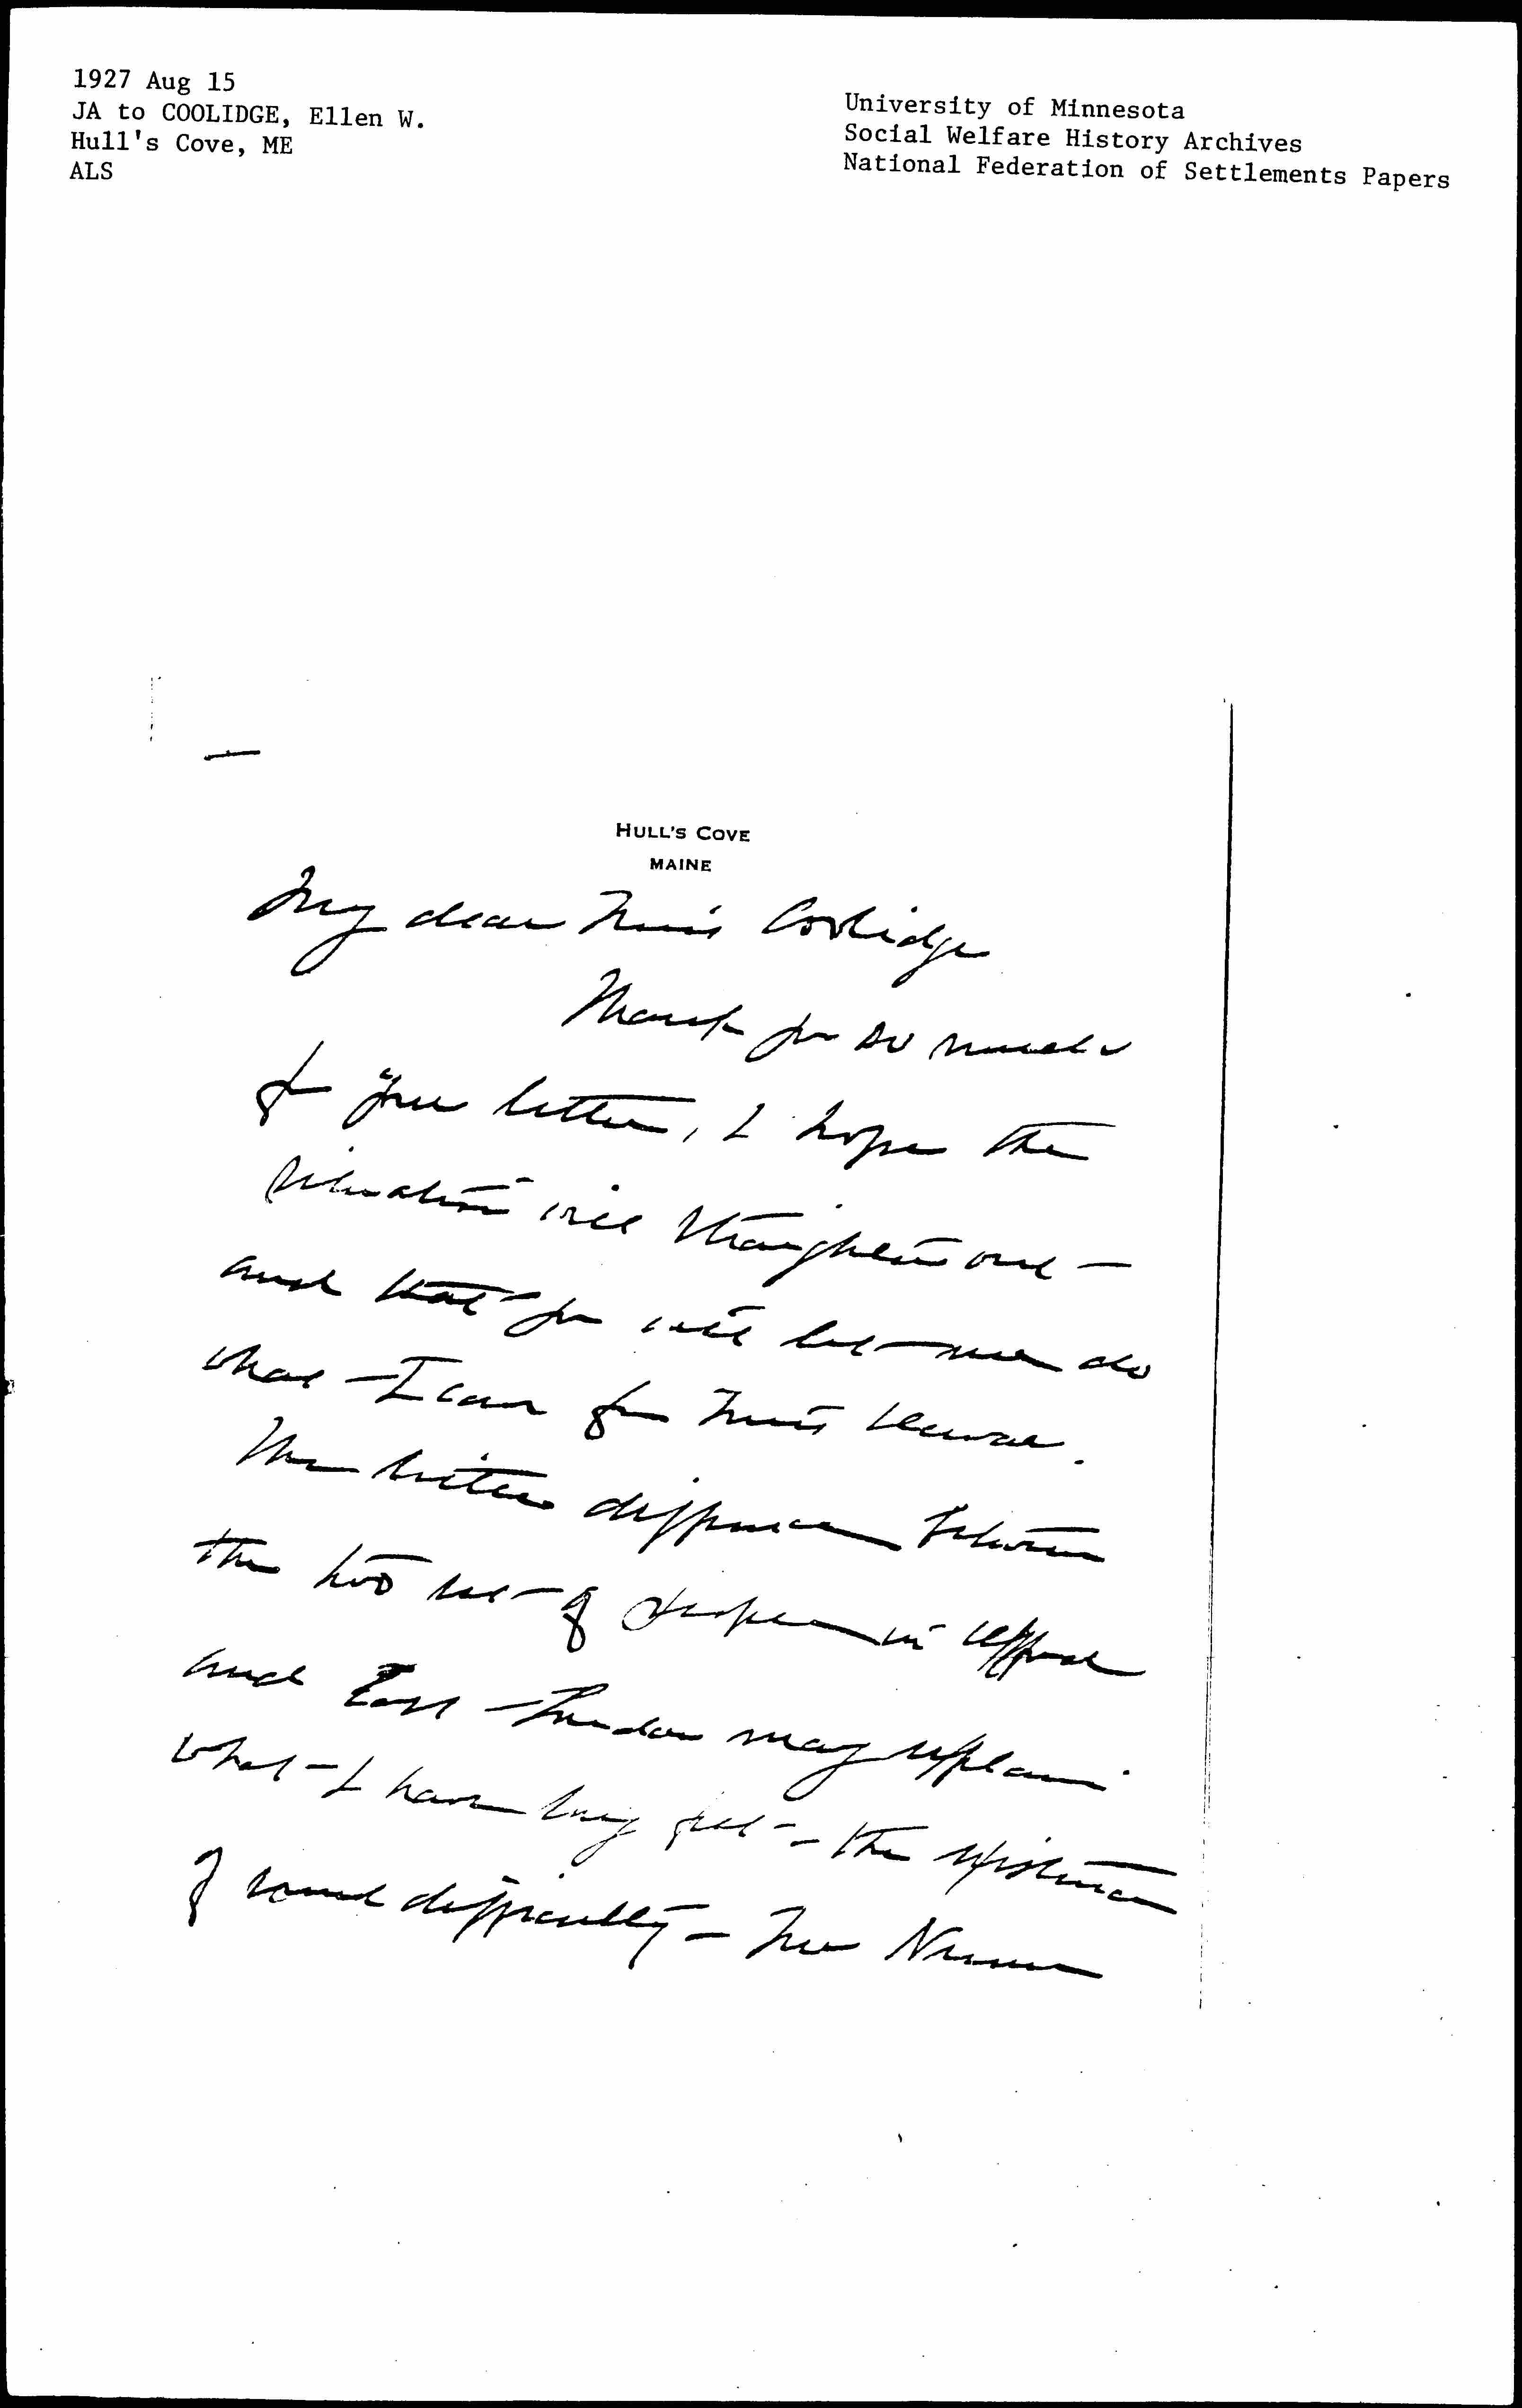 1927 Aug 15
JA to COOLIDGE, Ellen W.
Hull's Cove, ME
ALS
University of Minnesota
Social Welfare History Archives
National Federation of Settlements Papers
HULL'S COVE
MAINE
My dear Miss Coolidge
Thank you so much
for your letter, I hope the
situation will straighten out –
and that you will let me do
what I can for Miss
The difference between
the two of in
and East London may explain
what I have long felt – the existence
of some difficulty –